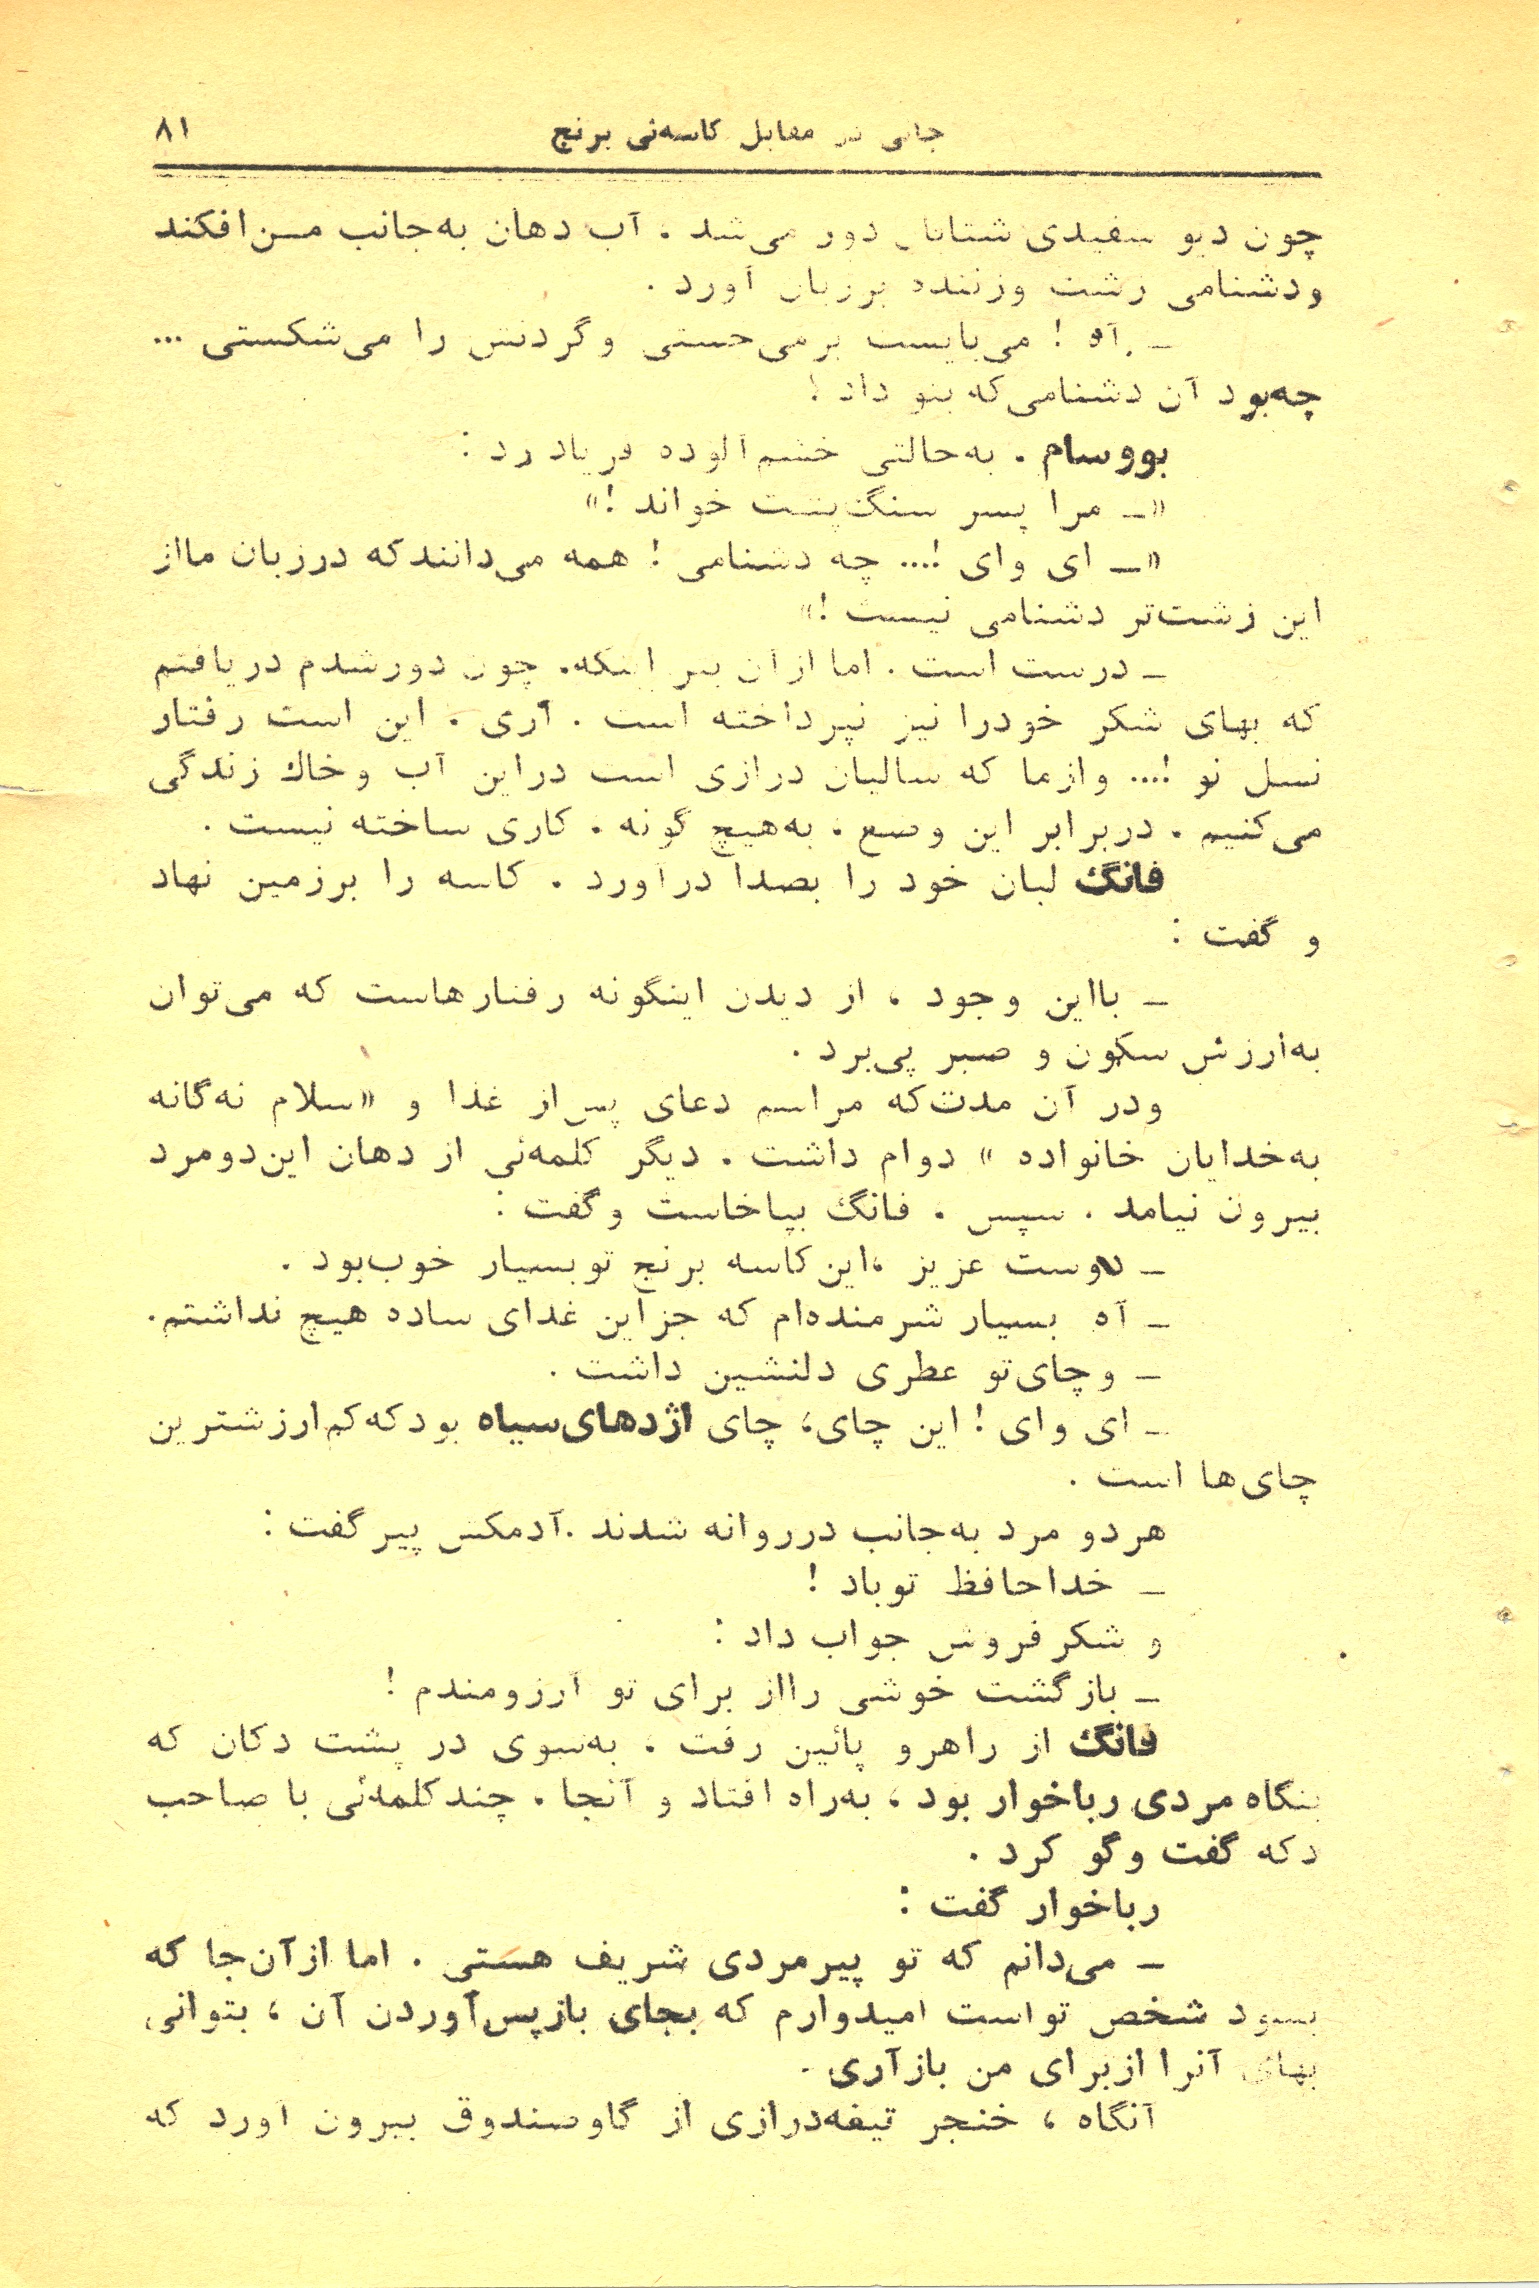 جانی در مقابل کاسه‌ئی برنج ۸۱
چون دیو سفیدی شتابان دور می‌شد . آب دهان به‌جانب مـن افکند
ودشنامی زشت وزننده برزبان آورد .
ـ آه ! می‌بایست برمی‌جستی و گردنش را می‌شکستی ...
چه‌بود آن دشنامی‌که بتو داد !
بووسام ، به‌حالتی خشم‌آلوده فریاد زد :
«ـ مرا پسر سنگ‌پشت خواند !»
«ـ ای وای !... چه دشنامی ! همه می‌دانندکه درزبان مااز
این زشت‌تر دشنامی نیست !»
ـ درست است . اما ازآن بتر اینکه، چون دورشدم دریافتم
که بهای شکر خودرا نیز نپرداخته است . آری ، این است رفتار
نسل نو !... وازما که سالیان درازی است دراین آب وخاك زندگی
می‌کنیم ، دربرابر این وضع ، به‌هیچ گونه ، کاری ساخته نیست .
فانگ لبان خود را بصدا درآورد ، کاسه را برزمین نهاد
و گفت :
ـ بااین وجود ، از دیدن اینگونه رفتارهاست که می‌توان
به‌ارزش سکون و صبر پی‌برد .
ودر آن مدت‌که مراسم دعای پس‌از غذا و «سلام نه‌گانه
به‌خدایان خانواده » دوام داشت ، دیگر کلمه‌ئی از دهان این‌دومرد
بیرون نیامد . سپس ، فانگ بپاخاست وگفت :
ـ دوست عزیز ،این‌کاسه برنج توبسیار خوب‌بود .
ـ آه بسیار شرمنده‌ام که جزاین غذای ساده هیچ نداشتم.
ـ وچای‌تو عطری دلنشین داشت .
ـ ای وای ! این چای، چای اژدهای‌سیاه بودکه‌کم‌ارزشترین
چای‌ها است .
هردو مرد به‌جانب درروانه شدند .آدمکش پیرگفت :
ـ خداحافظ توباد !
و شکرفروش جواب داد :
ـ بازگشت خوشی رااز برای تو آرزومندم !
فانگ از راهرو پائین رفت ، به‌سوی در پشت دکان که
بنگاه مردی رباخوار بود ، به‌راه افتاد و آنجا ، چندکلمه‌ئی با صاحب
دکه گفت وگو کرد .
رباخوار گفت :
ـ می‌دانم که تو پیرمردی شریف هستی . اما ازآن‌جا که
بسود شخص تواست امیدوارم که بجای بازپس‌آوردن آن ، بتوانی
بهای آنرا ازبرای من بازآری .
آنگاه ، خنجر تیغه‌درازی از گاوصندوق بیرون آورد که